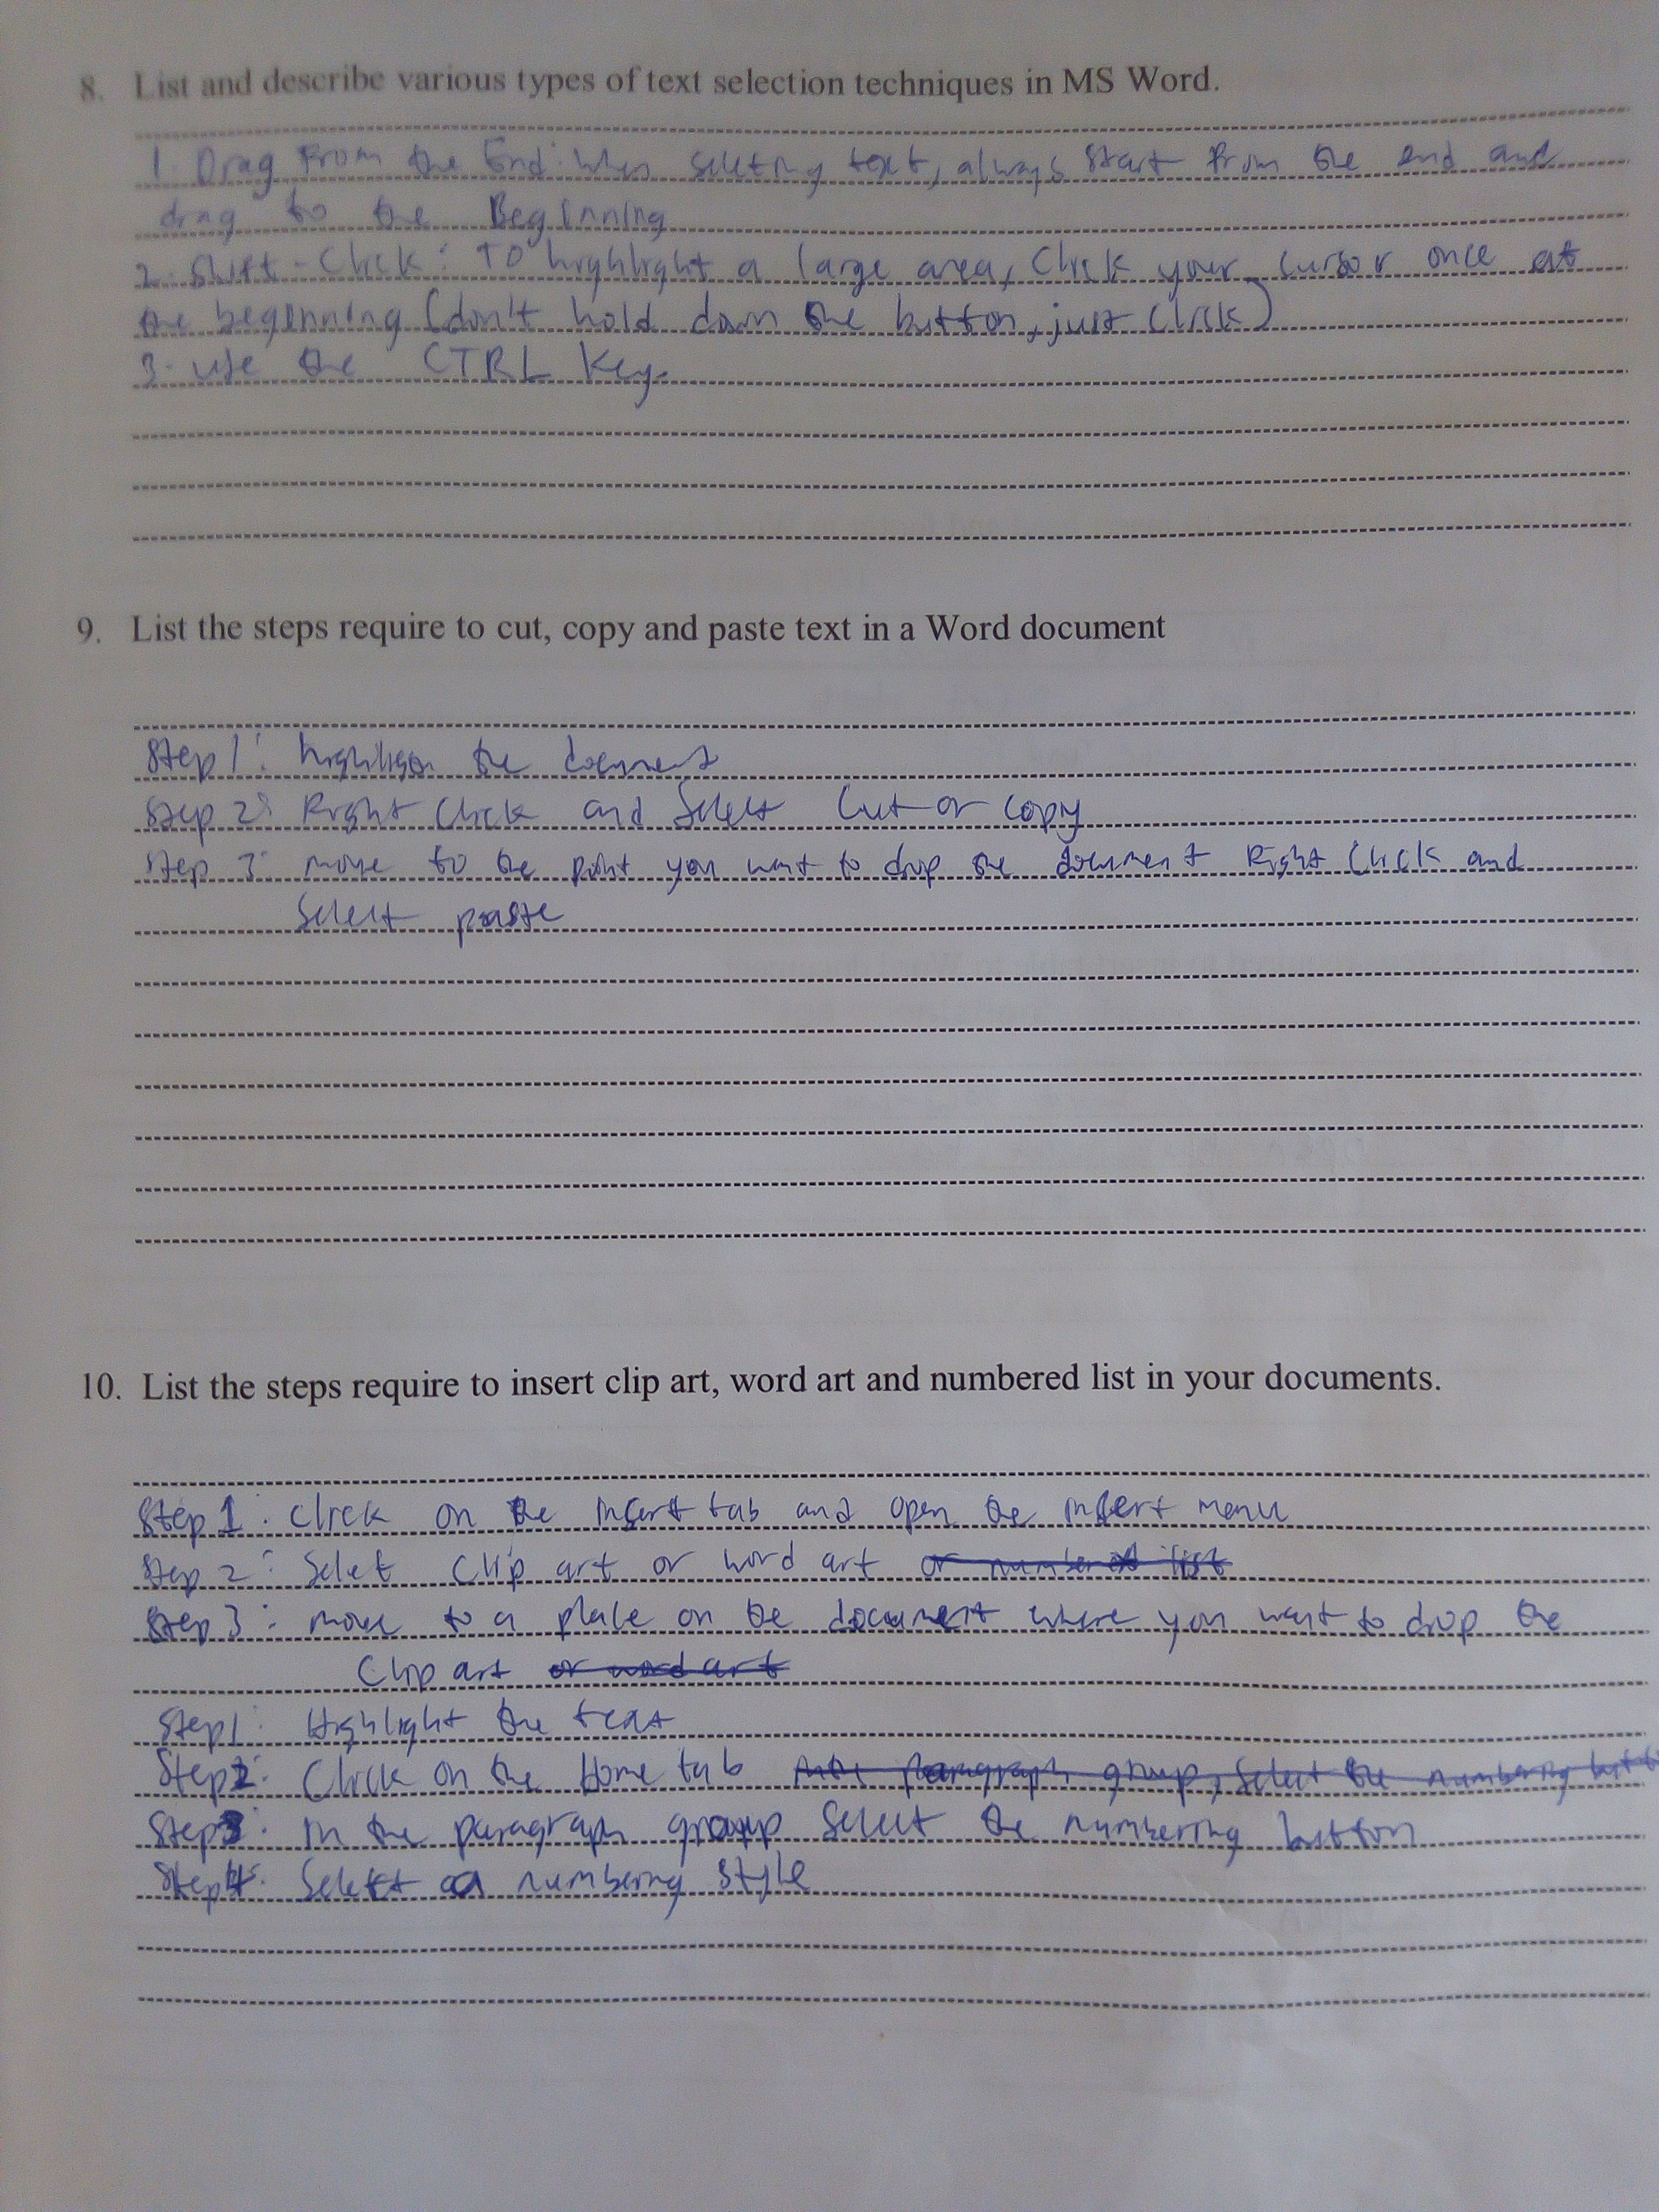 8. List and describe various types of text selection techniques in MS Word.
1. Drag From the End: When seleting text, always start from the end and
drag to the Beginning
2. Shift - Click: To highlight a large area, Click your cursor once at
the beginning (don't hold down the button, just click)
3. use the CTRL Key.
9. List the steps require to cut, copy and paste text in a Word document
Step 1: the document
Step 2: Right Click and Select Cut or copy
Step 3: move to the point you want to drop the document Right Click and
Select paste
10. List the steps require to insert clip art, word art and numbered list in your documents.
Step 1: Click on the Insert tab and open the insert menu
Step 2: Selet Clip art or word art or numbered list
Step 3: move to a place on the document where you want to drop the
Clip art or word art
Step 1: Highlight the text
Step 2: Click on the Home tab paragraph group, Select the numbering
Step 3: In the paragraph group Select the numbering button
Step 4: Select a numbering style